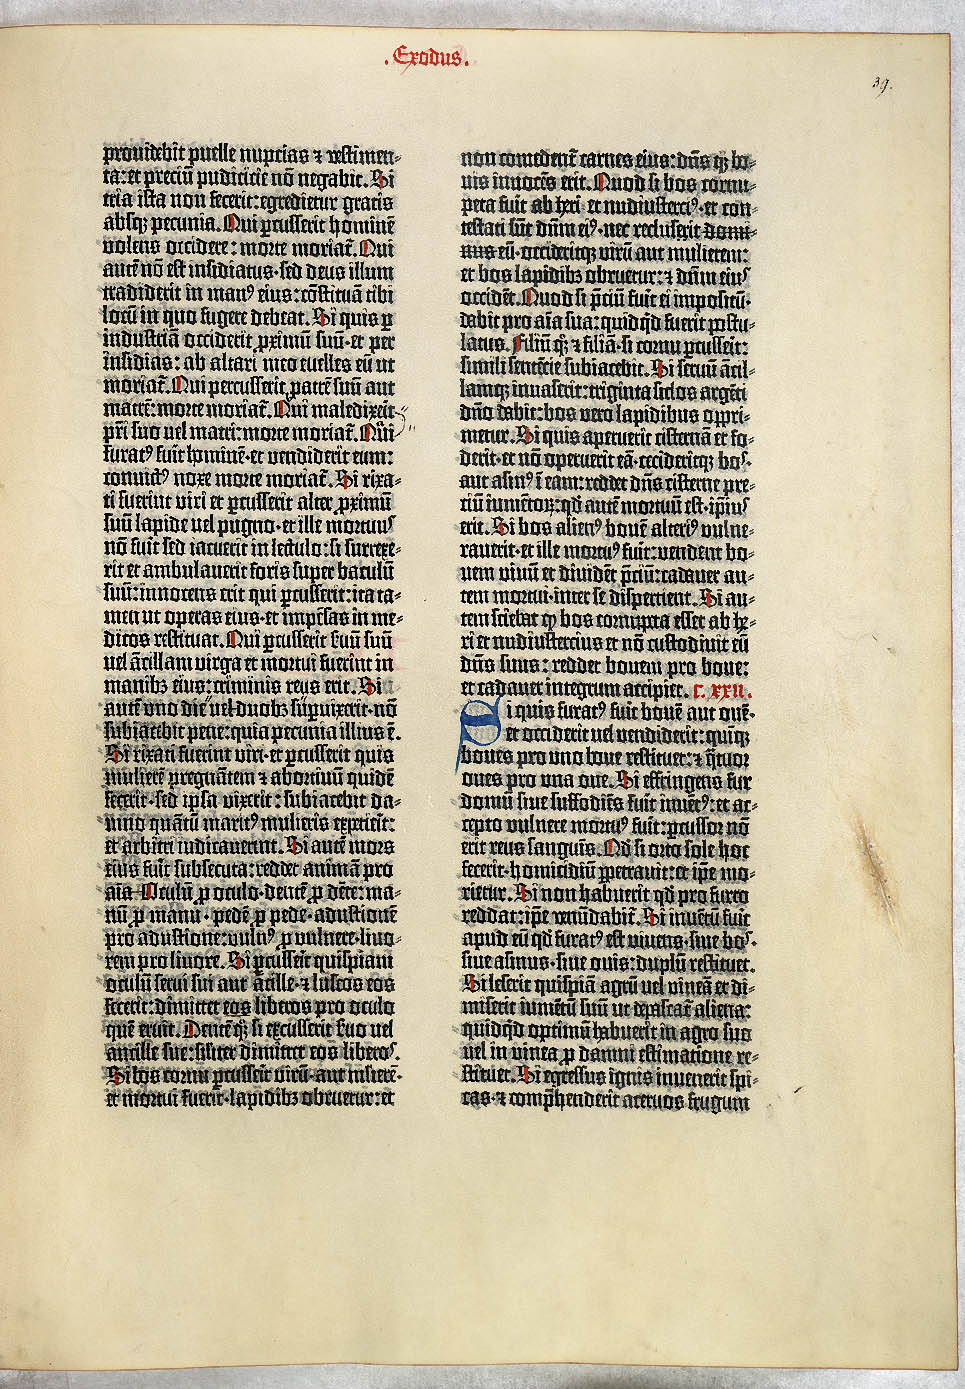 .Exodus.
39.
prouidebit puelle nuptias ⁊ vestimen-
ta: et preciū pudicicie nō negabit. Si
tria ista non fecerit: egredietur gratis
absqꝫ pecunia. Qui ꝑcusserit hominē
volens occidere: morte moriat̄. Qui
autē nō est insidiatus· sed deus illum
tradiderit in manꝰ eius: cōstituā tibi
locū in quo fugere debeat. Si quis ꝑ
industriā occiderit ꝓximū suū· et per
insidias: ab altari meo euelles eū ut
moriat̄. Qui percusserit patrē suū aut
matrē: morte moriat̄. Qui maledixerit
pr̄i suo uel matri: morte moriat̄. Qui
furatꝰ fuit hominē· et vendiderit eum:
conuictꝰ noxe morte moriat̄. Si rixa-
ti fuerint viri et ꝑcusserit alter ꝓximū
suū lapide uel pugno· et ille mortuus
nō fuit sed iacuerit in lectulo: si surrexe-
rit et ambulauerit foris super baculū
suū: innocens erit qui ꝑcusserit: ita ta-
men ut operas eius· et impēsas in me-
dicos restituat. Qui ꝑcusserit ẜuū suū
uel ācillam virga et mortui fuerint in
manibꝫ eius: criminis reus erit. Si
autē vno die uel duobꝫ suꝑuixerit· nō
subiacebit pene: quia pecunia illius ē.
Si rixati fuerint viri· et ꝑcusserit quis
mulierē pregnātem ⁊ abortiuū quidē
fecerit· sed ipsa vixerit: subiacebit da-
mno quātū maritꝰ mulieris expetierit:
et arbitri iudicauerint. Si autē mors
eius fuit subsecuta: reddet animā pro
aīa· Oculū ꝓ oculo· dentē ꝓ dēte: ma-
nū ꝓ manu· pedē ꝓ pede· adustionē
pro adustione: vulnꝰ ꝓ vulnere· liuo-
rem pro liuore. Si ꝑcusserit quispiam
oculū serui sui aut ācille· ⁊ luscos eos
fecerit: dimittet eos liberos pro oculo
quē eruit. Dentē qꝫ si excusserit ẜuo uel
ancille sue: sil̄iter dimittet eos liberos.
Si bos cornu ꝑcusserit virū· aut mlierē·
et mortui fuerit· lapidibꝫ obruetur: et
non comedent̄ carnes eius: dn̄s qꝫ bo-
uis innocēs erit. Quod si bos cornu-
peta fuit ab heri et nudiustercꝰ· et con-
testati sūt dn̄m eiꝰ· nec recluserit domi-
nus eū· occideritqꝫ virū aut mulierem:
et bos lapidibꝫ obruetur: ⁊ dn̄m eius
occidēt. Quod si p̄ciū fuit ei impositū·
dabit pro aīa sua: quidq̄d fuerit postu-
latus. Filiū qꝫ ⁊ filiā· si cornu ꝑcusserit:
simili sentencie subiacebit. Si seruū ācil-
lamqꝫ inuaserit: triginta siclos argēti
dn̄o dabit: bos vero lapidibus oppri-
metur. Si quis aperuerit cisternā et fo-
derit· et nō operuerit eā· cecideritqꝫ bos·
aut asinꝰ ī eam: reddet dn̄s cisterne pre-
ciū iumētoꝝ: qd̄ autē mortuū est· ip̄ius
erit. Si bos alienꝰ bouē alteriꝰ vulne-
rauerit· et ille mortuꝰ fuit: vendent bo-
uem viuū et diuidēt p̄ciū: cadauer au-
tem mortui· inter se dispertient. Si au-
tem sciebat qꝫ bos cornupeta esset ab he-
ri et nudiustercius et nō custodiuit eū
dn̄s suus: reddet bouem pro boue:
et cadauer integrum accipiet. C. XXII.
Si quis furatꝰ fuit bouē aut ouē·
et occiderit uel vendiderit: quīqꝫ
boues pro vno boue restituet: ⁊ q̄tuor
oues pro vna oue. Si effringens fur
domū siue suffodiēs fuit inuētꝰ: et ac-
cepto vulnere mortuꝰ fuit: ꝑcussor nō
erit reus sanguīs. Qd̄ si orto sole hoc
fecerit· homicidiū ꝑpetrauit: et ip̄e mo-
rietur. Si non habuerit qd̄ pro furto
reddat: ip̄e venūdabit̄. Si inuētū fuit
apud eū qd̄ furatꝰ est viuens· siue bos·
siue asinus· siue ouis: duplū restituet.
Si leserit quispiā agrū uel vineā· et di-
miserit iumētū suū ut depascat̄ aliena:
quidq̄d optimū habuerit in agro suo
uel in vinea ꝑ damni estimatione re-
stituet. Si egressus ignis inuenerit spi-
cas· ⁊ comp̄henderit aceruos frugum